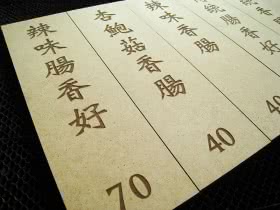 辣味腸香好
70
杏鮑菇香腸
40
辣味香腸
40
統香腸
腸香好